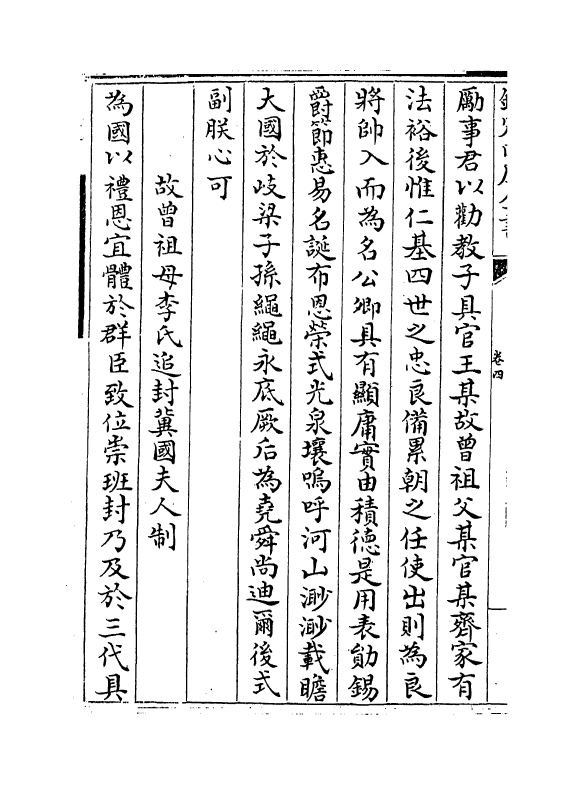 勵事君以勸教子具官王某故曾祖父某官某齊家有
法裕後惟仁基四世之忠良備累朝之任使出則為良
將帥入而為名公卿具有顯庸實由積德是用表勛錫
爵節惠易名誕布恩榮式光泉壤嗚呼河山渺渺載瞻
大國於岐梁子孫繩繩永底厥后為堯舜尚迪爾後式
副朕心可
故曾祖母李氏追封冀國夫人制
為國以禮恩宜體於群臣致位崇班封乃及於三代具
卷四